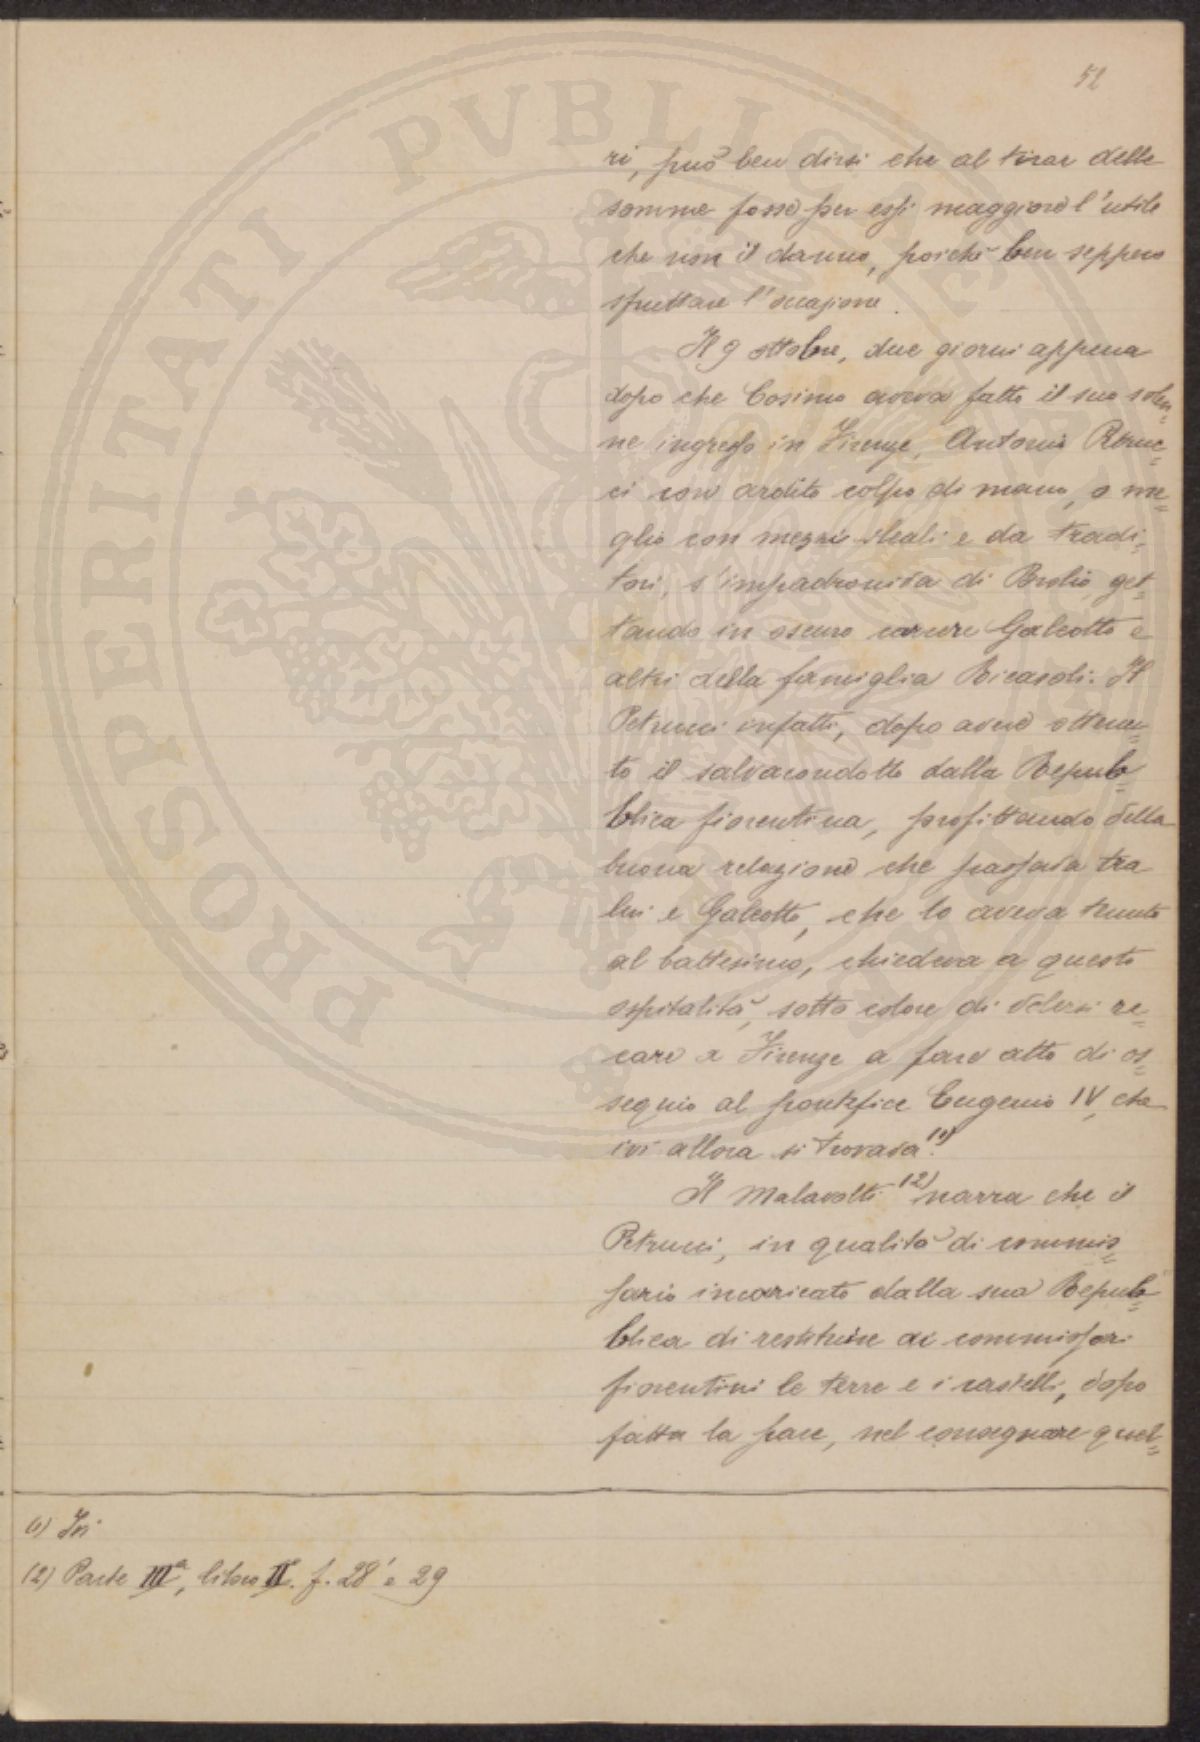 52
ri, può ben dirsi che al tirar delle
somme fosse per essi maggiore l'utile
che non il danno, poichè ben seppero
sfruttare l'occasione.
Il 9 ottobre, due giorni appena
dopo che Cosimo aveva fatto il suo solen=
ne ingresso in Firenze, Antonio Petruc=
ci con ardito colpo di mano, o me=
glio con mezzi sleali e da tradi=
tori, s'impadroniva di Brolio, get=
tando in oscuro carcere Galeotto e
altri della famiglia Ricasoli. Il
Petrucci infatti, dopo avere ottenu=
to il salvacondotto dalla Repub=
blica fiorentina, profittando della
buona relazione che passava tra
lui e Galeotto, che lo aveva tenuto
al battesimo, chiedeva a questo
ospitalità, sotto colore di volersi re=
care a Firenze a fare atto di os=
sequio al pontefice Eugenio IV, che
ivi allora si trovava.(1)
Il Malavolti (2) narra che il
Petrucci, in qualità di commis=
sario incaricato dalla sua Repub=
blica di restituire ai commissari
fiorentini le terre e i castelli, dopo
fatta la pace, nel consegnare quel=
(1) Ivi
(2) Parte IIIª, libro II. f. 28' e 29
PROSPERITATI PVBLICAE